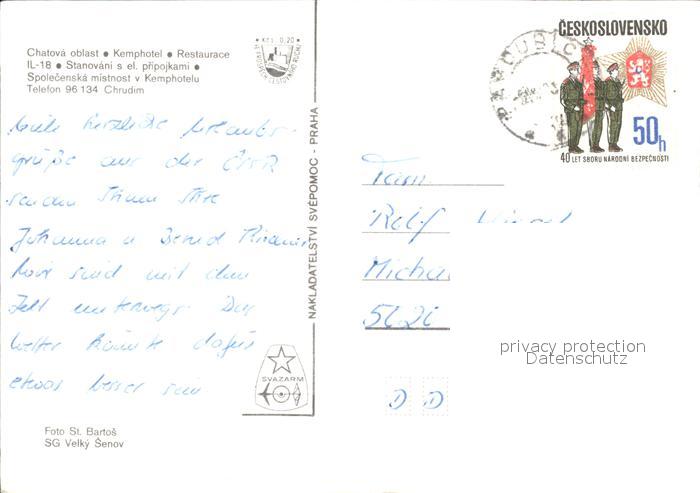 Chatová oblast • Kemphotel • Restaurace
IL-18 • Stanování s el. přípojkami •
Společenská místnost v Kemphotelu
Telefon 96 134 Chrudim
Kčs 0,20
Viele herzliche Urlaubs-
grüße aus der ČSSR
senden Ihnen Ihre
Johanna u Bernd
Wir sind mit dem
Zelt unterwegs. Das
Wetter könnte dafür
etwas besser sein
Foto St. Bartoš
SG Velký Šenov
NAKLADATELSTVÍ SVÉPOMOC - PRAHA
SVAZARM
PARDUBICE
ČESKOSLOVENSKO
50h
40 LET SBORU NÁRODNÍ BEZPEČNOSTI
Fam.
Rolf
Micha
562
DD
privacy protection
Datenschutz